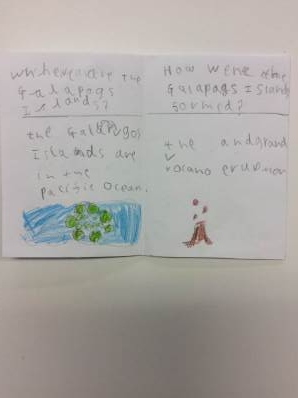 Where are the
Galapags
Islands?
the Galapagos
Islands are
in the
pacific Ocean.
How were the
Galapags Islands
formed?
the andgrand
v
volcano erupted